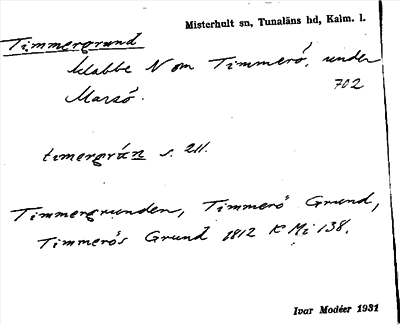 Misterhult sn, Tunaläns hd, Kalm. l.
Timmergrund
klabbe N om Timmerö, under
702
Marsö.
timərgrún s. 211.
Timmergrunden, Timmerö Grund,
Timmerö's Grund 1812 K Mi 138.
Ivar Modéer 1931